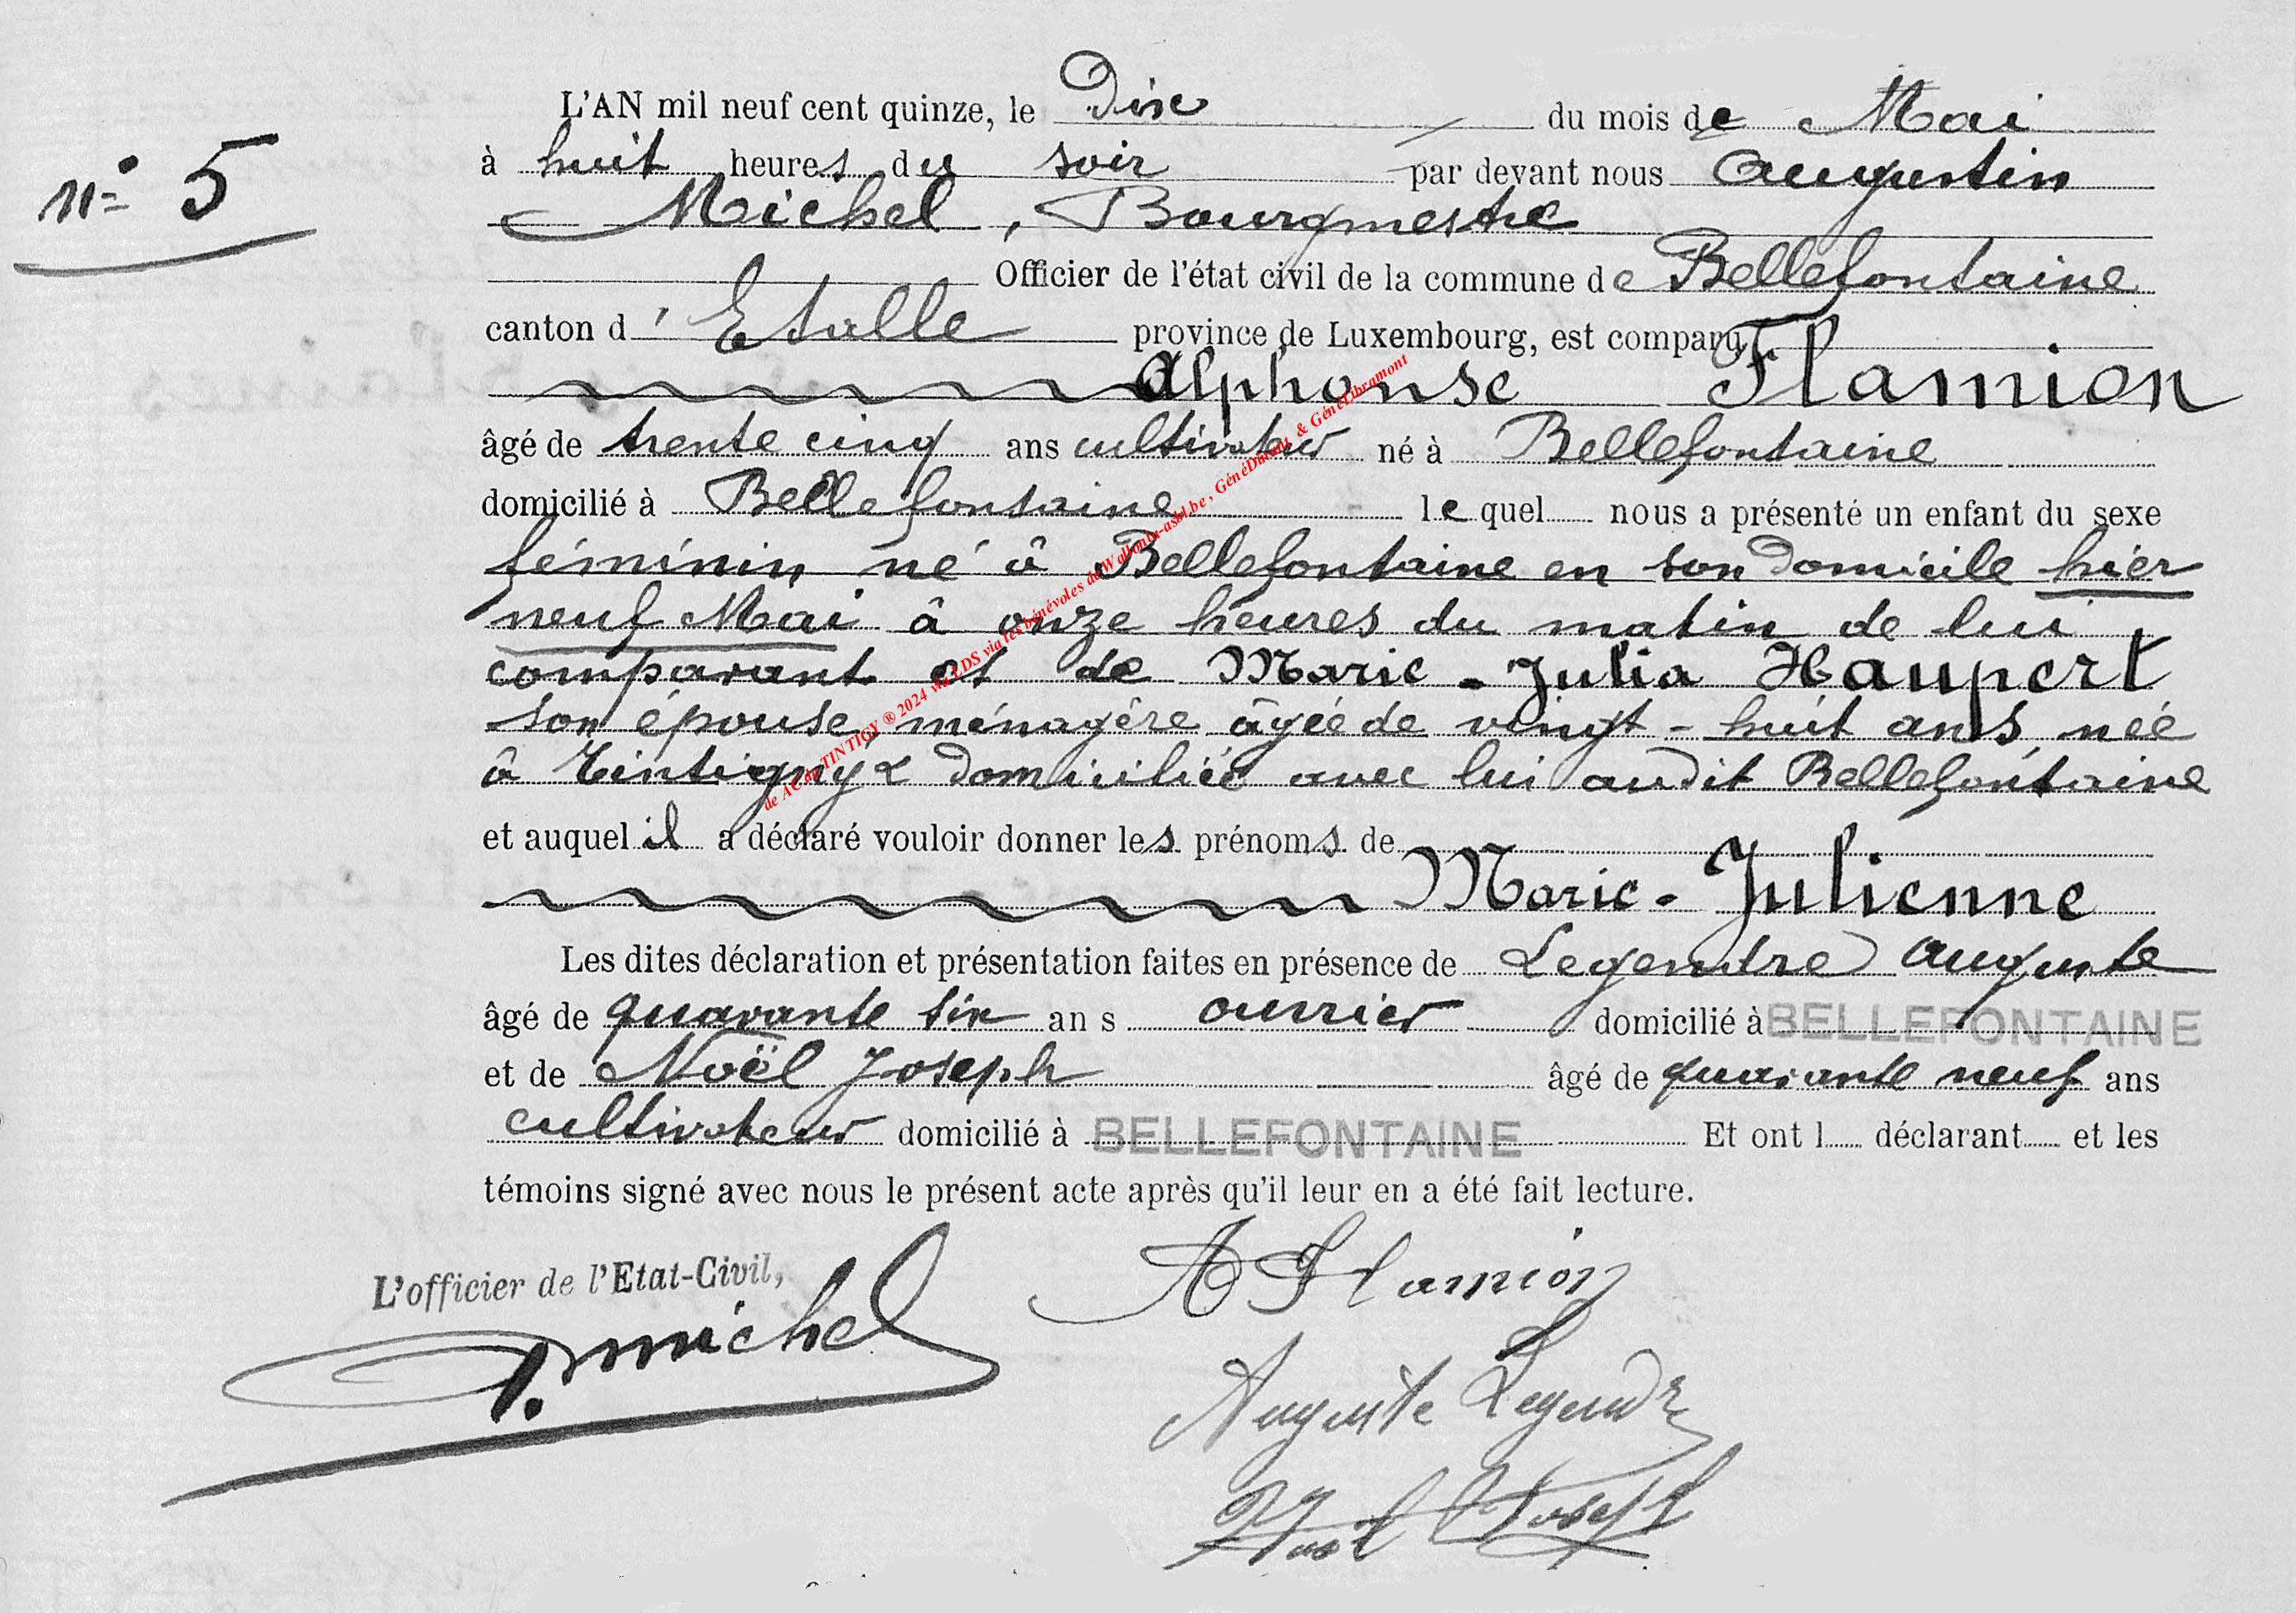 n° 5
L'AN mil neuf cent quinze, le Dix du mois de Mai
à huit heures du soir par devant nous Augustin
Michel, Bourgmestre
Officier de l'état civil de la commune de Bellefontaine
canton d'Etalle province de Luxembourg, est comparu
Alphonse Flamion
âgé de trente cinq ans cultivateur né à Bellefontaine
domicilié à Bellefontaine lequel nous a présenté un enfant du sexe
féminin né à Bellefontaine en son domicile hier
neuf Mai à onze heures du matin de lui
comparant et de Marie-Julia Haupert
son épouse, ménagère âgée de vingt-huit ans, née
à Tintigny & domiciliée avec lui audit Bellefontaine
et auquel il a déclaré vouloir donner les prénoms de
Marie-Julienne
Les dites déclaration et présentation faites en présence de Legendre Auguste
âgé de quarante six ans ouvrier domicilié à BELLEFONTAINE
et de Noël Joseph âgé de quarante neuf ans
cultivateur domicilié à BELLEFONTAINE Et ont l déclarant et les
témoins signé avec nous le présent acte après qu'il leur en a été fait lecture.
L'officier de l'Etat-Civil,
A Flamion
A. Michel
Auguste Legendre
Noël Joseph
de AC de TINTIGY ® 2024 via LDS via les bénévoles de Wallonia-asbl.be, GénéDinant & GénéLibramont